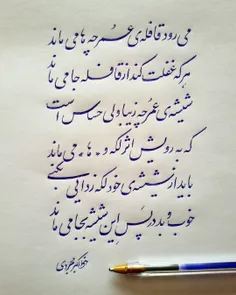 می رود قافله ی عمر چه ها می ماند
هر که غفلت کند از قافله جا می ماند
شیشه ی عمر چه زیبا ولی حساس است
که به رویش اثر لکه و . ها . می ماند
باید از شیشه ی خود لکه زدایی بکنی
خوب و بد در پس این شیشه بجا می ماند